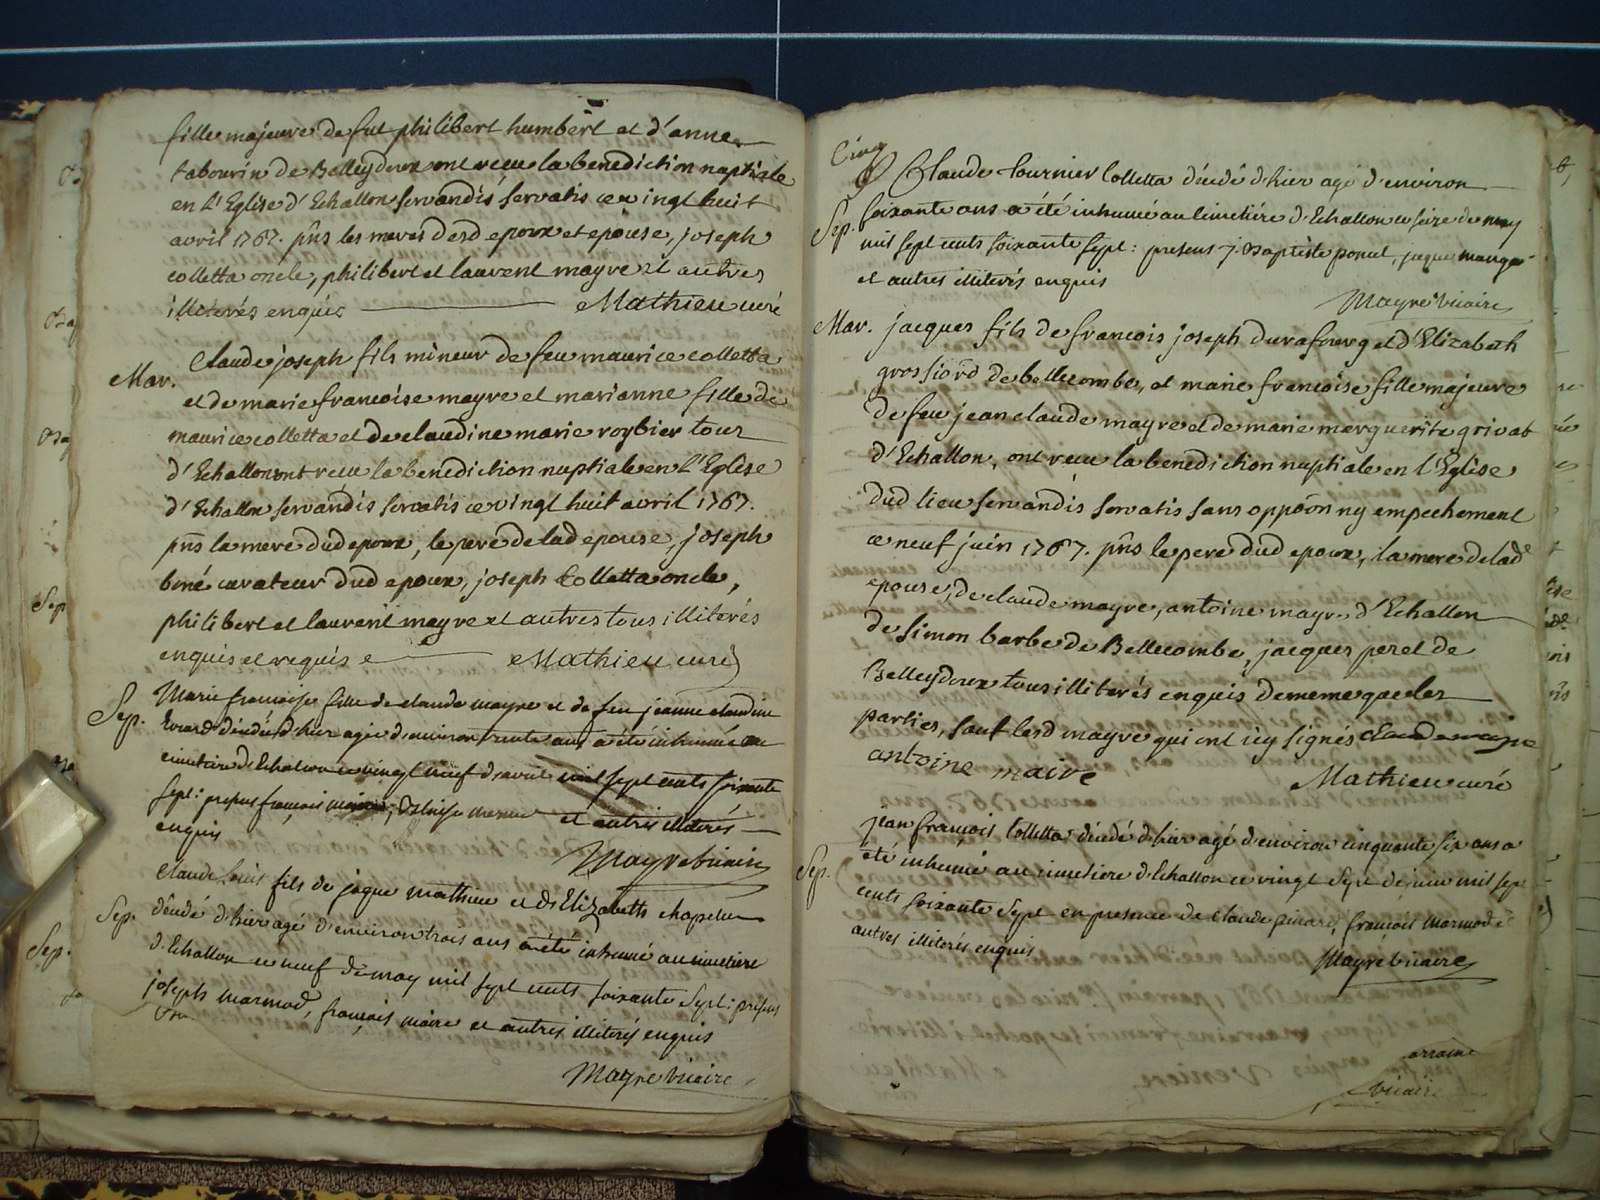 fille majeure de fut philibert humbert et d'anne
tabourin de Belleydoux ont recu la benediction nuptiale
en l'Eglise d'Echallon servandis servatis ce vingt huit
avril 1767. pñs les meres desd epoux et epouse, joseph
colletta oncle, philibert et laurent mayre et autres
illiterés enquis Mathieu curé
Mar. Claude joseph fils mineur de feu maurice colletta
et de marie francoise mayre et marianne fille de
maurice colletta et de claudine marie roybier tous
d'Echallon ont recu la benediction nuptiale en l'Eglise
d'Echallon servandis servatis ce vingt huit avril 1767.
pñs la mere dud epoux, le pere de lad epouse, joseph
biné curateur dud epoux, joseph Colletta oncle,
philibert et laurent mayre et autres tous illiterés
enquis et requis Mathieu curé
Sep. Marie françoise fille de claude mayre et de feu jeanne claudine
décédée d'hier agée d'environ trente ans a été inhumée au
cimetiere d'Echallon ce vingt neuf d'avril mil sept cents soixante
sept: presens françois et autres illiterés
enquis
Mayre vicaire
Claude Louis fils de jaque mathieu et d'Elizabeth chapelu
Sep. décédé d'hier agé d'environ trois ans a été inhumé au cimetiere
d'Echallon ce neuf de may mil sept cents soixante sept: presens
joseph marmod, françois maire et autres illiterés enquis
Mayre vicaire
Cinq
Claude tournier Colletta décédé d'hier agé d'environ
Sep. soixante ans a été inhumé au cimetiére d'Echallon ce seize de may
mil sept cents soixante sept: presens j. Baptiste poncet, jaque
et autres illiterés enquis
Mayre vicaire
Mar. jacques fils de francois joseph durafourg et d'Elizabeth
grossiord de bellecombe, et marie francoise fille majeure
de feu jean claude mayre et de marie marguerite grivat
d'Echallon, ont recu la benediction nuptiale en l'Eglise
dud lieu servandis servatis sans oppõon ny empechement
ce neuf juin 1767. pñs le pere dud epoux, la mere de lad
epouse, de claude mayre, antoine mayre d'Echallon
de simon barbe de Bellecombe, jacques peret de
Belleydoux tous illiterés enquis de meme que les
parties, sauf lesd mayre qui ont icy signés
antoine maire Mathieu curé
jean françois Colletta décédé d'hier agé d'environ cinquante six ans a
Sep. été inhumé au cimetiere d'Echallon ce vingt sept de juin mil sept
cents soixante sept en presence de claude pinard, françois marmod et
autres illiterés enquis Mayre vicaire
vicaire